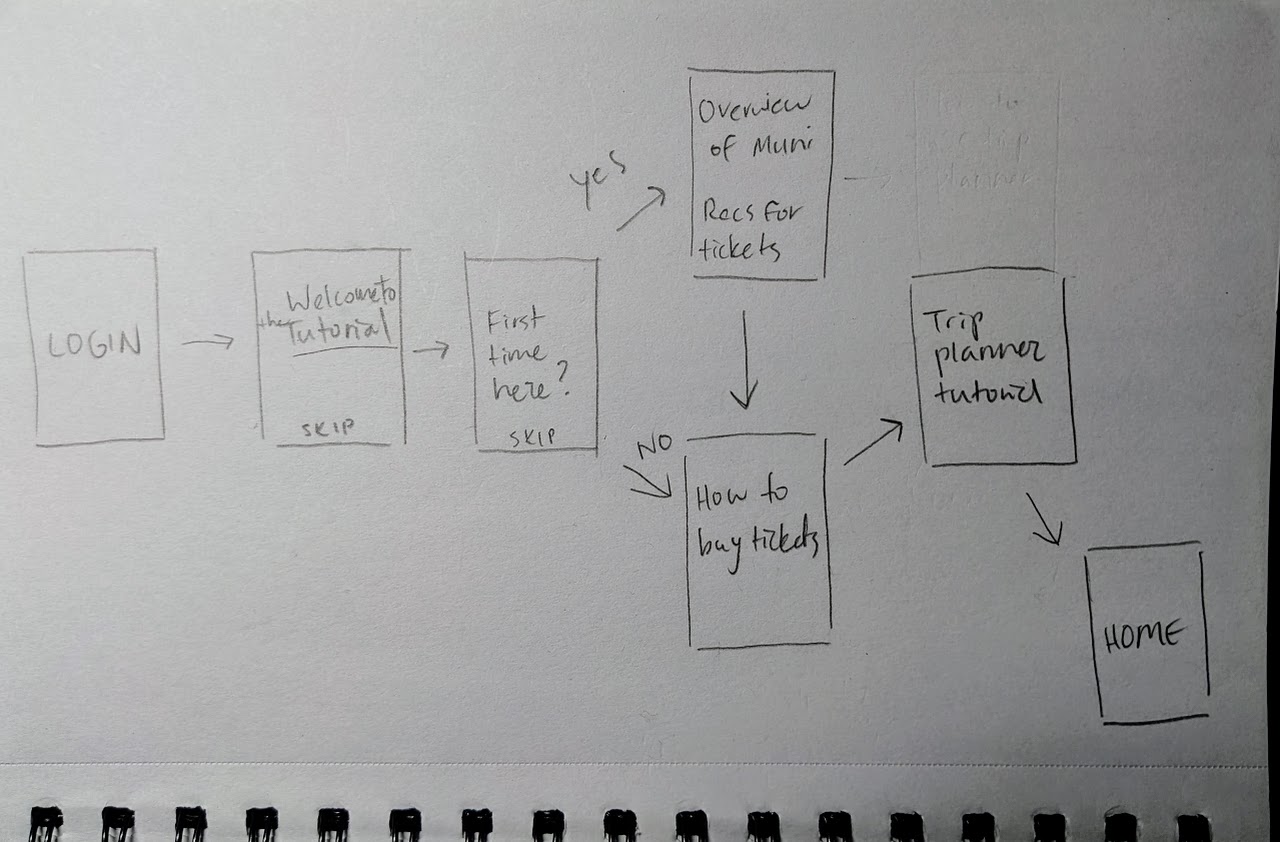 LOGIN
Welcome to
the Tutorial
SKIP
First
time
here?
SKIP
yes
Overview
of Muni
Recs for
tickets
NO
How to
buy tickets
trip
planner
Trip
planner
tutorial
HOME